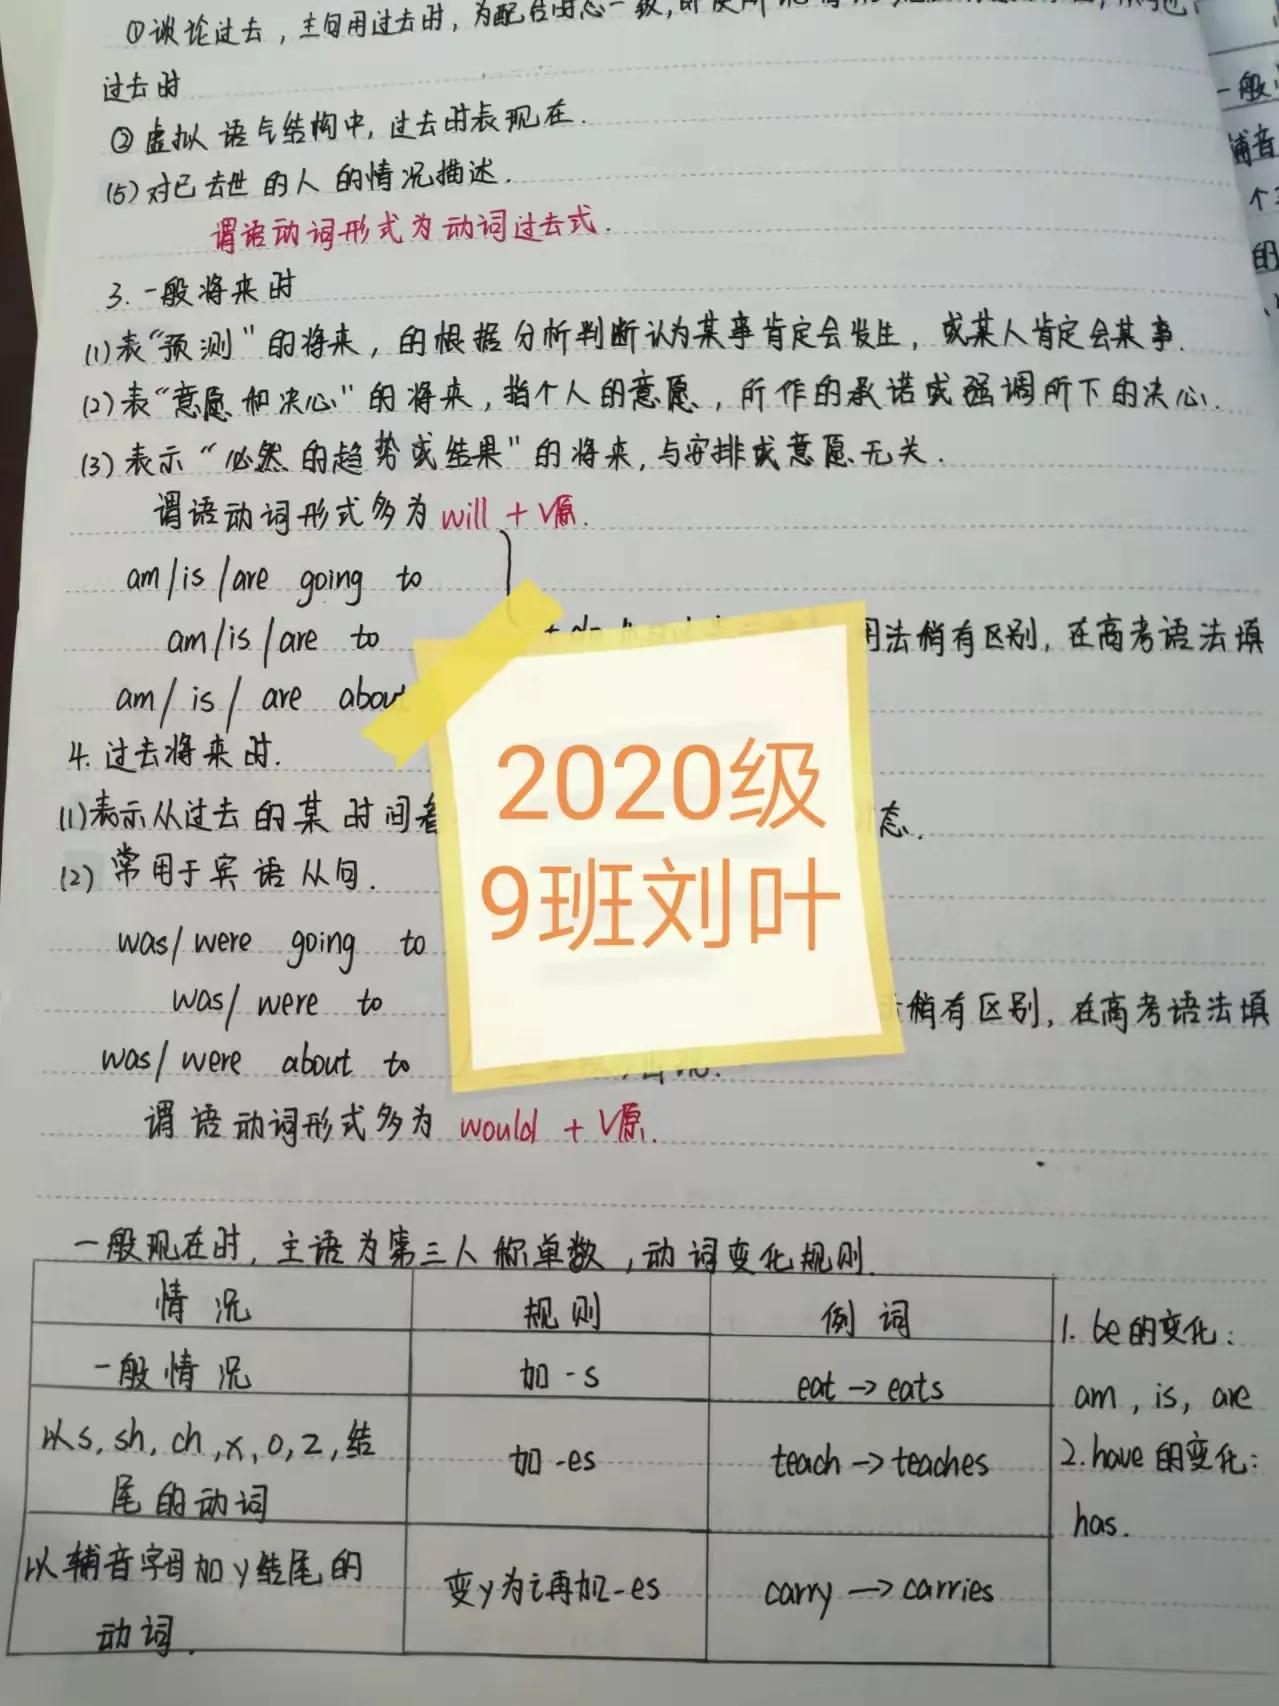 ①谈论过去，主句用过去时，为配合时态一致，即使
过去时
②虚拟语气结构中，过去时表现在．
(5)对已去世的人的情况描述．
谓语动词形式为动词过去式．
3．一般将来时
(1)表“预测”的将来，的根据分析判断认为某事肯定会发生，或某人肯定会某事．
(2)表“意愿和决心”的将来，指个人的意愿，所作的承诺或强调所下的决心．
(3)表示“必然的趋势或结果”的将来，与安排或意愿无关．
谓语动词形式多为 will + V原．
am/is/are going to
am/is/are to 用法稍有区别，在高考语法填
am/is/are about
4．过去将来时．
(1)表示从过去的某时间看 态．
(2)常用于宾语从句．
was/were going to
was/were to 稍有区别，在高考语法填
was/were about to
谓语动词形式多为 would + V原．
2020级
9班刘叶
一般现在时，主语为第三人称单数，动词变化规则．
情况 规则 例词
一般情况 加-s eat→eats
以s, sh, ch, x, o, z, 结
尾的动词 加-es teach→teaches
以辅音字母加y结尾的
动词． 变y为i再加-es carry→carries
1. be的变化：
am, is, are
2. have的变化：
has.
一般
辅音
个
的